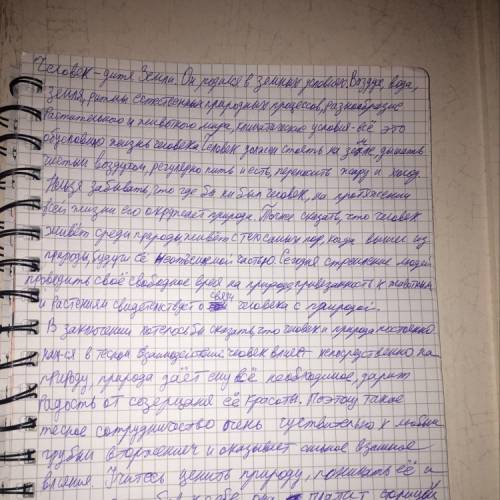 Человек - дитя Земли. Он родился в земных условиях. Воздух, вода,
земля, ритмы естественных природных процессов, разнообразие
растительного и животного мира, климатические условия - всё это
обусловило жизнь человека. Человек должен стоять на земле, дышать
чистым воздухом, регулярно пить и есть, переносить жару и холод.
Нельзя забывать, что где бы ни был человек, на протяжении
всей жизни его окружает природа. Можно сказать, что человек
живёт среди природы живёт с тех самых пор, когда вышел из
природы, будучи её неотъемлемой частью. Сегодня стремление людей
проводить своё свободное время на природе, привязанность к животным
и растениям свидетельствует о связи человека с природой.
В заключении хотелось бы сказать, что человек и природа постоянно
нах-ся в тесном взаимодействии. Человек влияет непосредственно на
природу, природа даёт ему всё необходимое, дарит
радость от созерцания её красоты. Поэтому такое
тесное сотрудничество очень чуствительно к любым
грубым вторжением и оказывает сильное взаимное
влияния Учитесь ценить природу, понимать её и
она платит